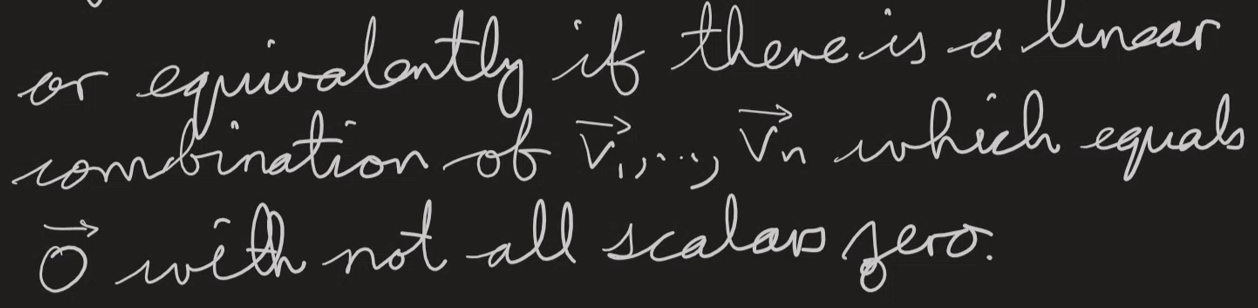 or equivalently if there is a linear
combination of v⃗₁,..., v⃗ₙ which equals
0⃗ with not all scalars zero.